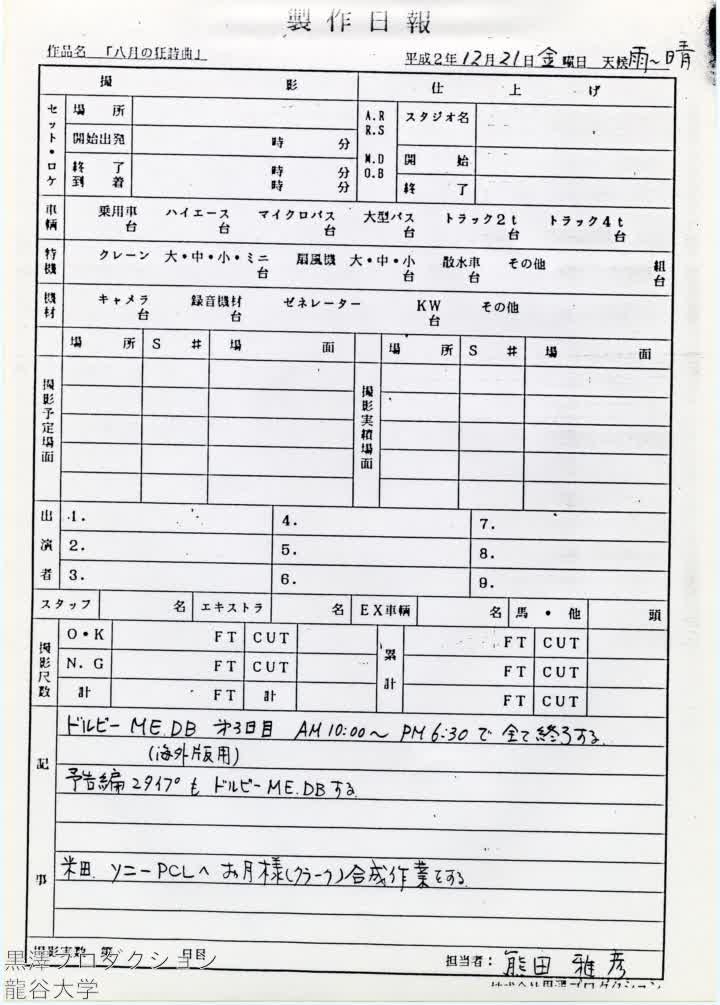 製作日報
作品名 「八月の狂詩曲」 平成2年12月21日金曜日 天候雨〜晴
撮 影 仕 上 げ
セット・ロケ 場 所 A.R R.S スタジオ名
開始出発 時 分
終 了 時 分 M.D O.B 開 始
到 着 時 分 終 了
車輌 乗用車 台 ハイエース 台 マイクロバス 台 大型バス 台 トラック2t 台 トラック4t 台
特機 クレーン 大・中・小・ミニ 台 扇風機 大・中・小 台 散水車 台 その他 組 台
機材 キャメラ 台 録音機材 台 ゼネレーター KW 台 その他
撮影予定場面 場 所 S # 場 面 撮影実績場面 場 所 S # 場 面
出演者 1. 4. 7.
2. 5. 8.
3. 6. 9.
スタッフ 名 エキストラ 名 EX車輌 名 馬・他 頭
撮影尺数 O・K FT CUT 累計 FT CUT
N.G FT CUT FT CUT
計 FT 計 FT CUT
記事
ドルビー ME.DB 第3日目 AM10:00〜PM6:30で全て終了する
(海外版用)
予告編2タイプもドルビーME.DBする
米田. ソニーPCLへお月様(クラーク)合成作業をする
撮影実数 第 日目 担当者: 熊田 雅彦
株式会社黒澤プロダクション
黒澤プロダクション
龍谷大学